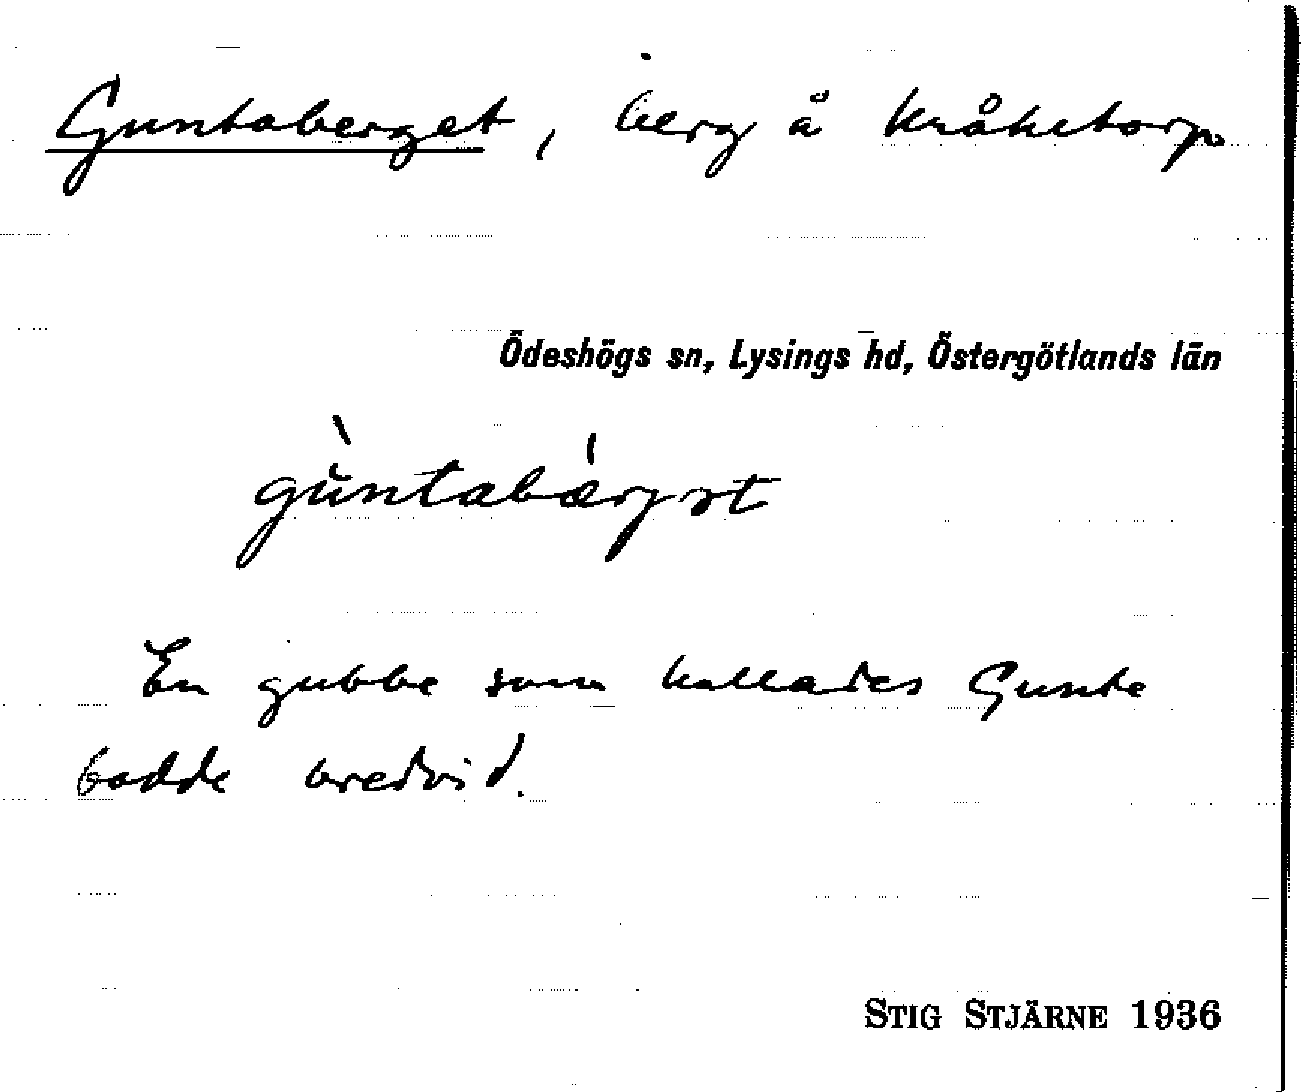 Guntaberget, berg å Kråketorp
Ödeshögs sn, Lysings hd, Östergötlands län
gùntabǽrjət
En gubbe som kallades Gunte
bodde bredvid.
STIG STJÄRNE 1936